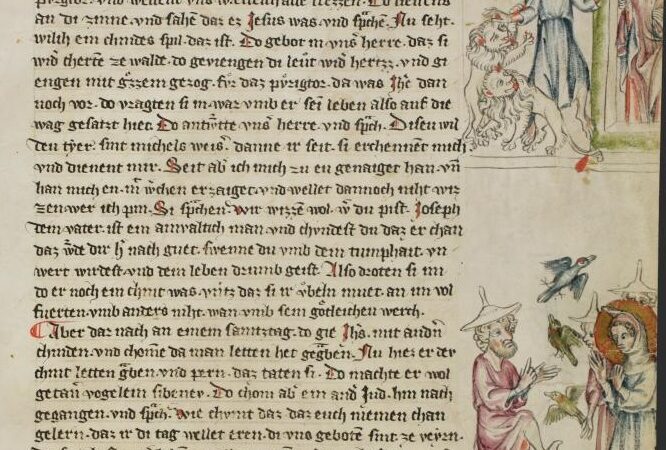 an di zinne · vnd sahen daz ez Jesus was · vnd sprachen · Nu seht ·
wilch ein chindes spil daz ist · Do gebot in vnser herre · daz si
wider cherten ze walde · do geviengen di leut wider hertzz · vnd gi
engen mit grozzem gezog · fur daz purigtor · da was Jhs dan
noch vor · do vragten si in · war vmb er sei leben also auf die
wag gesatzt hiet · Do antwrtte vns herre · vnd sprach · Disev wil
den tyer · sint michels weis · danne ir seit · si erchennent mich
vnd dienent mir · Seit ab ich mich zu ev genaiget han · vn
han mich en · in wchen erzaiget · vnd wellet dannoch niht wiz
zen · wer ich pin · Si sprachen · wir wizzen wol · wer du pist · Joseph
dein vater · ist ein anvaltich man · vnd chvndest du daz er chan
daz wrde dir her nach guet · swenne du vmb dein tumphait · vn
wert wirdest · vnd dem leben drumb geist · Also droten si im
do er noch ein chint was · vntz daz si ir vbeln muet · an im vol
fuerten · vmb anders niht · wan vmb sein gotleichen werch ·
Aber dar nach an einem samtztag · do gie Jhs · mit andern
chinden · vnd chome da man letten het gegraben · Nu hiez er der
chint letten graben · vnd pern · daz taten si · Do machte er wol
getan vogelein sibenev · Do chom ab ein and Jud · hin nach
gegangen · vnd sprach · wie chvmt daz daz euch niemen chan
gelern · daz ir di tag wellet eren · di vns geboten sint ze veyrn ·